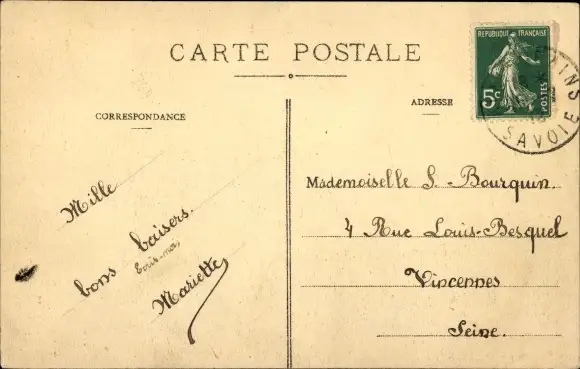 CARTE POSTALE
REPUBLIQUE FRANÇAISE
5c
POSTES
SAVOIE
CORRESPONDANCE
Mille
bons baisers.
Mariette
ADRESSE
Mademoiselle S. Bourquin.
4 Rue Louis-Besquel
Vincennes
Seine.